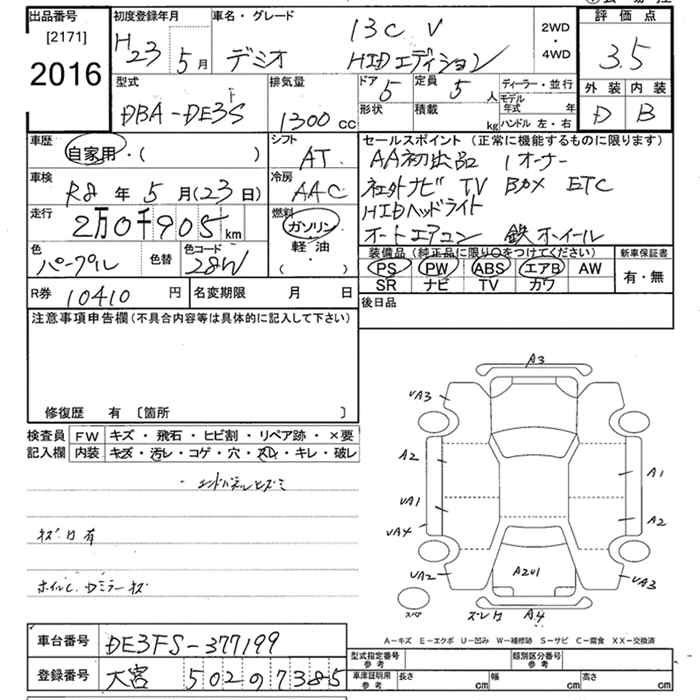 出品番号
[2171]
2016
初度登録年月
H23 5月
車名・グレード
13C V
デミオ HIDエディション
2WD
・
4WD
評価点
3.5
外装 内装
D B
型式
DBA-DE3FS
排気量
1300 cc
ドア 5
定員 5 人
形状
積載 kg
ディーラー・並行
モデル年式 年
ハンドル 左・右
車歴
自家用・( )
シフト
AT
車検
R8年5月(23日)
冷房
AAC
走行
2万0千905km
燃料
ガソリン
軽油
・
( )
色
パープル
色替
色コード
28W
セールスポイント(正常に機能するものに限ります)
AA初出品 1オーナー
社外ナビ TV Bカメ ETC
HIDヘッドライト
オートエアコン 鉄ホイール
装備品(純正品に限り○をつけてください)
PS PW ABS エアB AW
SR ナビ TV カワ
新車保証書
有・無
R券 10410 円
名変期限 月 日
後日品
注意事項申告欄(不具合内容等は具体的に記入して下さい)
修復歴 有 〔箇所 〕
検査員記入欄
FW キズ・飛石・ヒビ割・リペア跡・×要
内装 キズ・汚レ・コゲ・穴・スレ・キレ・破レ
・エンドパネルヒズミ
キズ凹有
ホイルC、Dミラーキズ
A3
UA3
A2
UA1
UA4
UA2
A1
A2
UA3
AU1
スペア
スレ凹
A4
A－キズ E－エクボ U－凹み W－補修跡 S－サビ C－腐食 XX－交換済
車台番号 DE3FS-377199
登録番号 大宮 502 の 7385
型式指定番号 参考
類別区分番号 参考
車庫証明用 参考
長さ cm
幅 cm
高さ cm